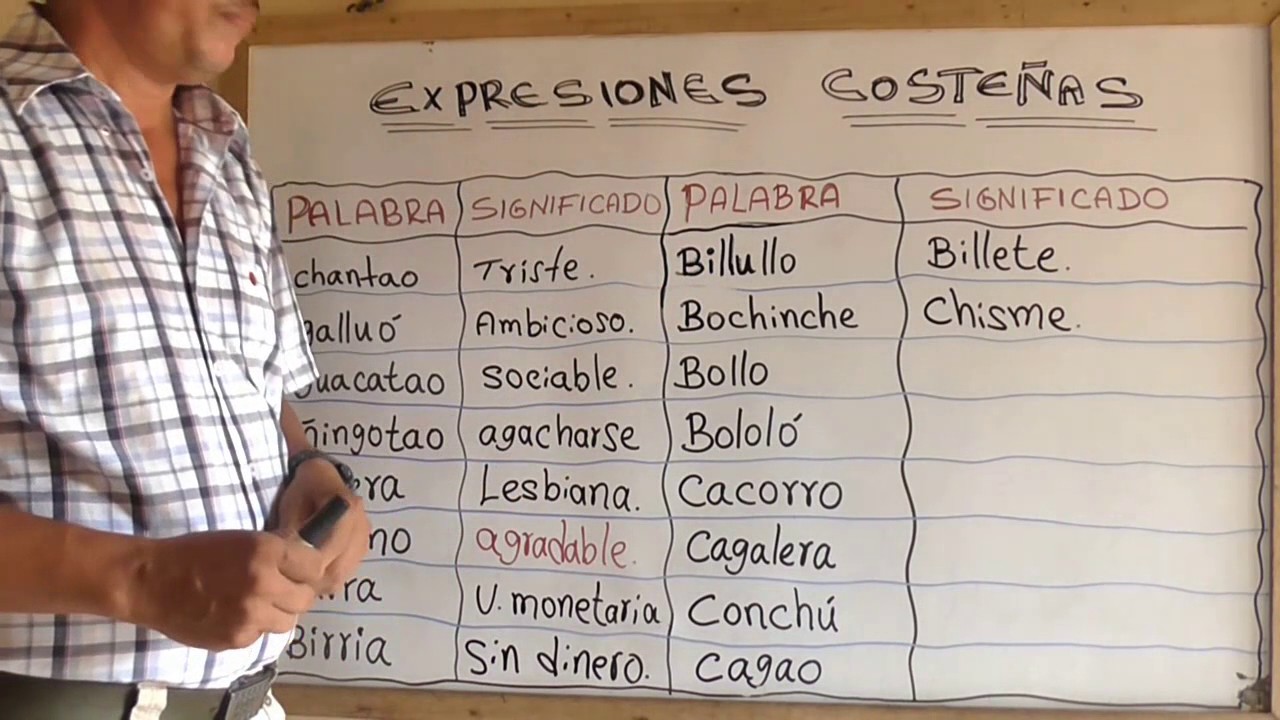 EXPRESIONES COSTEÑAS
PALABRA SIGNIFICADO PALABRA SIGNIFICADO
chantao Triste. Billullo Billete.
galluó Ambicioso. Bochinche Chisme.
guacatao sociable. Bollo
ñingotao agacharse Bololó
Lesbiana. Cacorro
agradable. Cagalera
U. monetaria Conchú
Birria Sin dinero. cagao